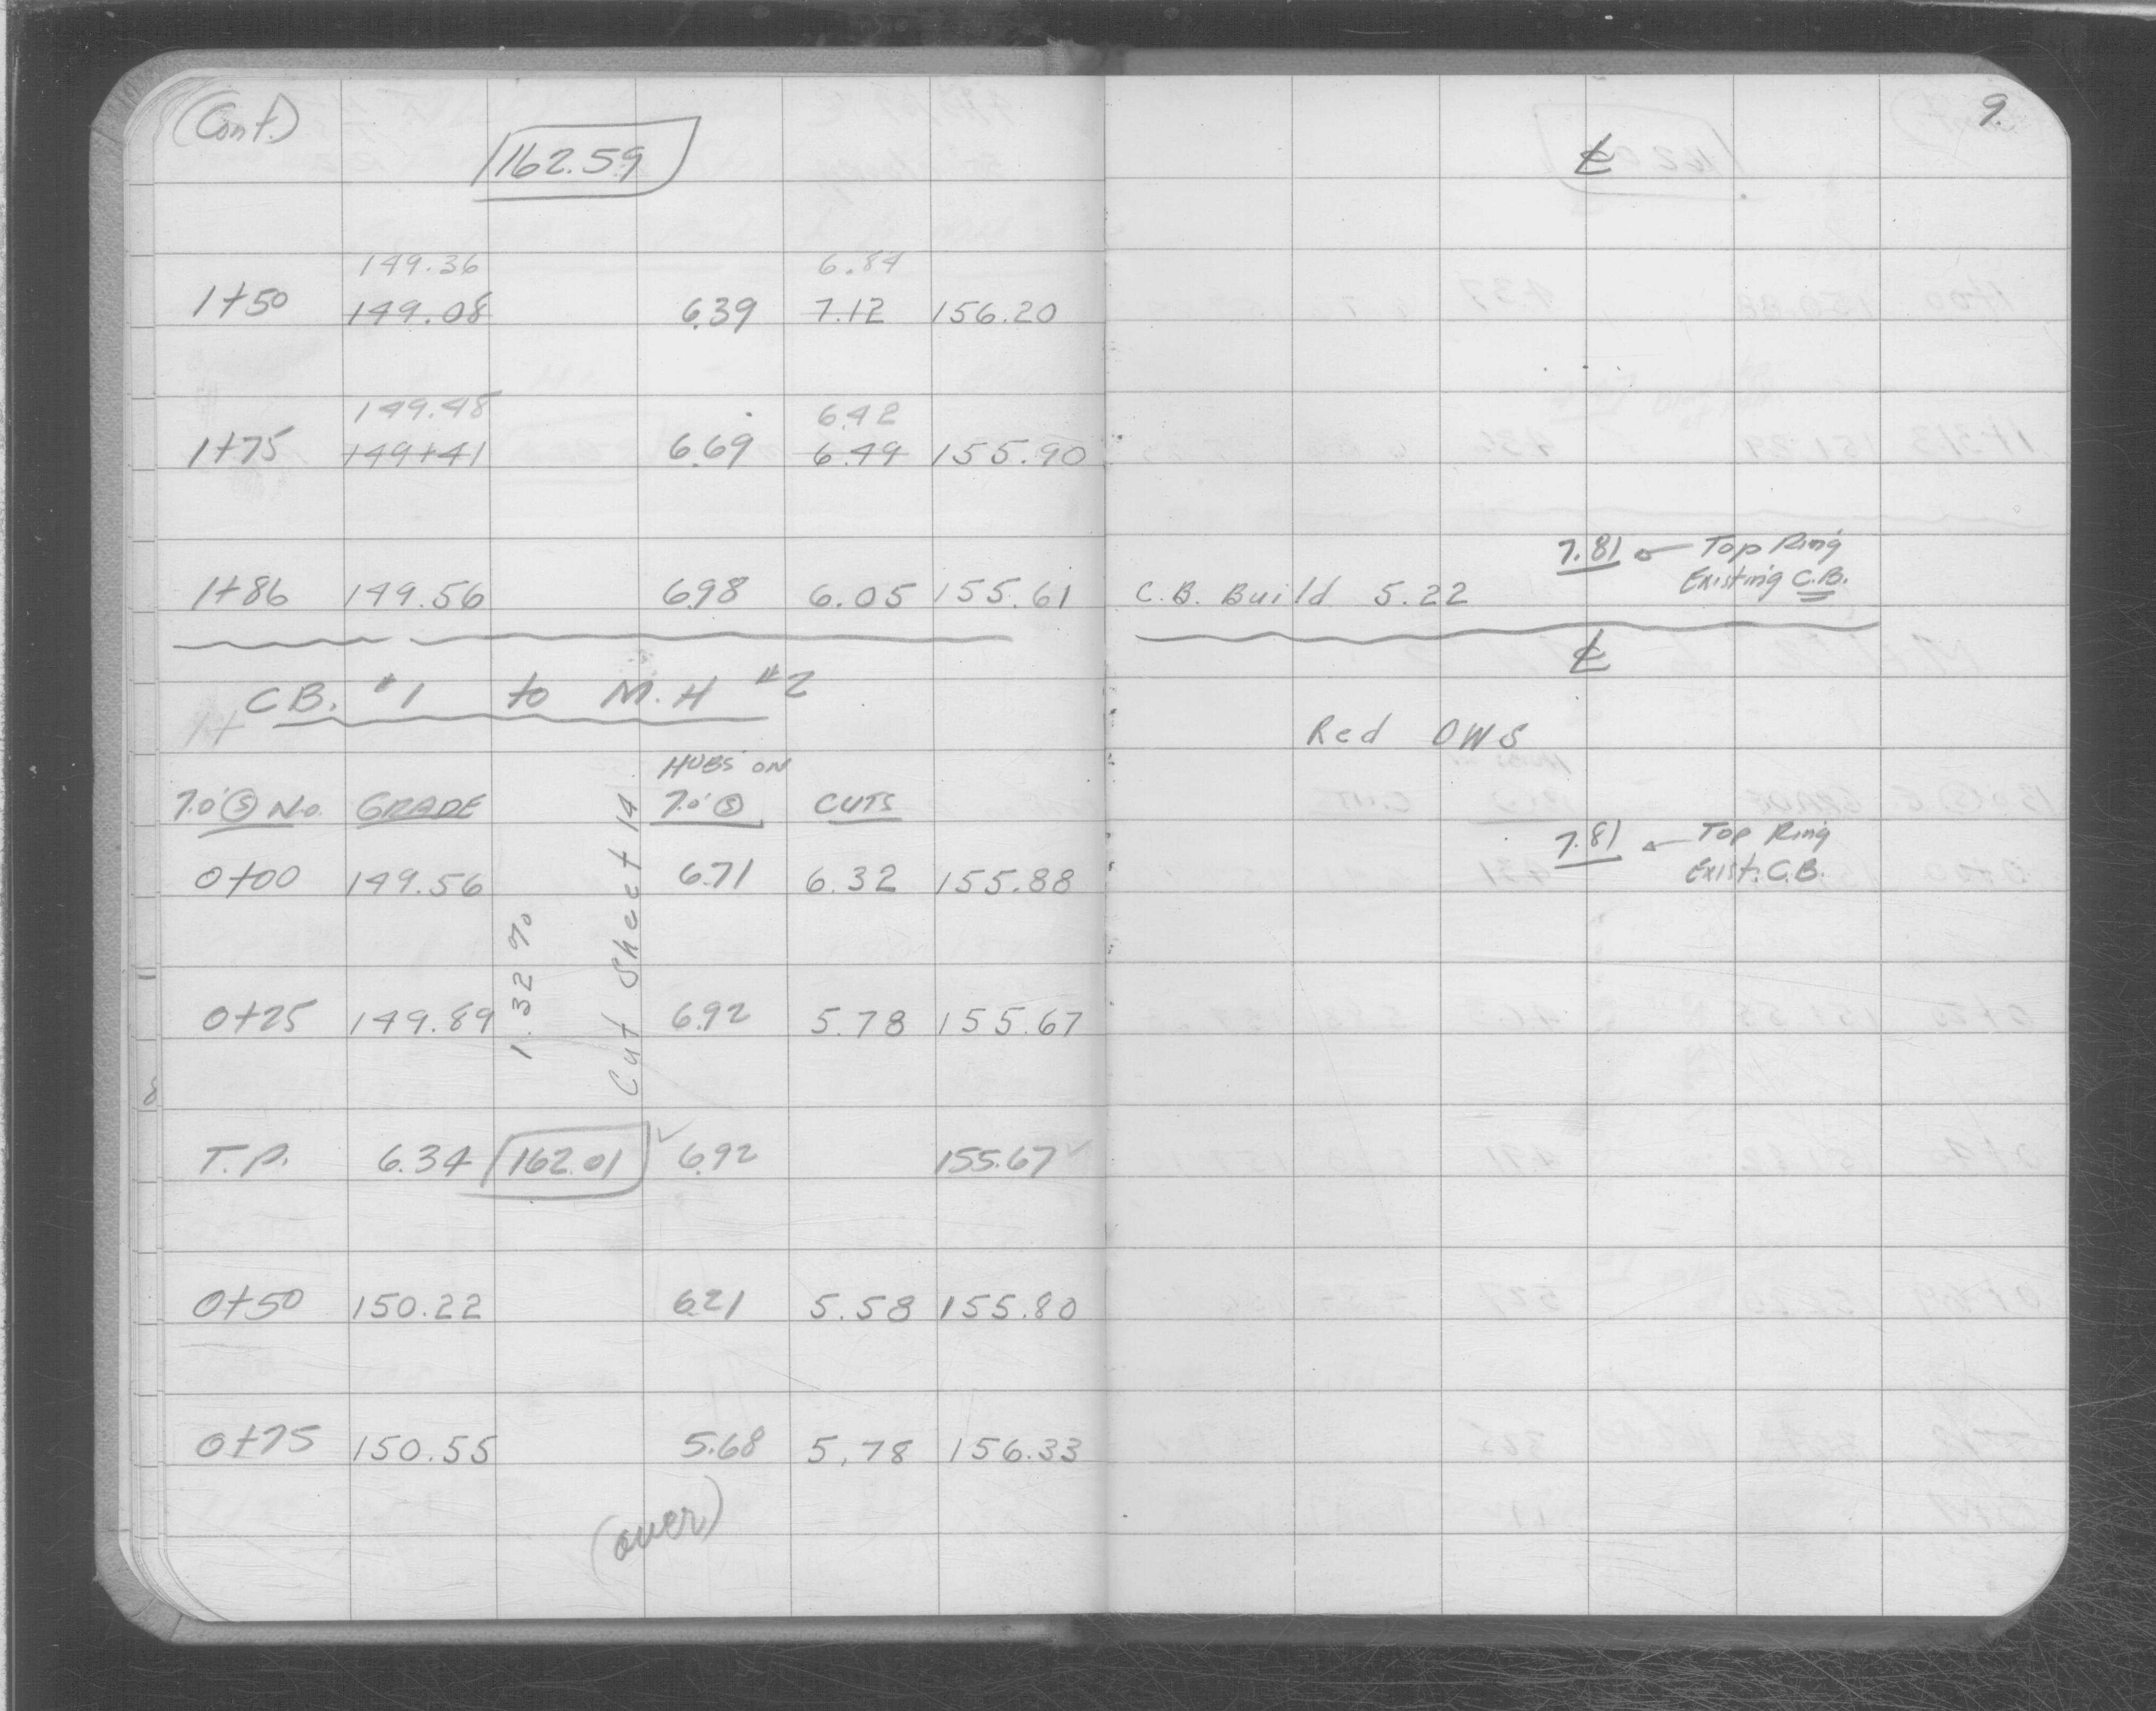 (Cont.)
162.59
149.36 6.84
1+50 149.08 6.39 7.12 156.20
149.48 6.42
1+75 149+41 6.69 6.49 155.90
1+86 149.56 6.98 6.05 155.61
C.B. #1 to M.H #2
HUBS ON
7.0' Ⓢ No. GRADE 7.0' Ⓢ CUTS
0+00 149.56 6.71 6.32 155.88
1.32%
Cut Sheet 14
0+25 149.89 6.92 5.78 155.67
T.P. 6.34 162.01 ✓ 6.92 155.67 ✓
0+50 150.22 6.21 5.58 155.80
0+75 150.55 5.68 5.78 156.33
(over)
9.
℄
7.81 ← Top Ring
Existing C.B.
C.B. Build 5.22
℄
Red OWS
7.81 ← Top Ring
Exist. C.B.